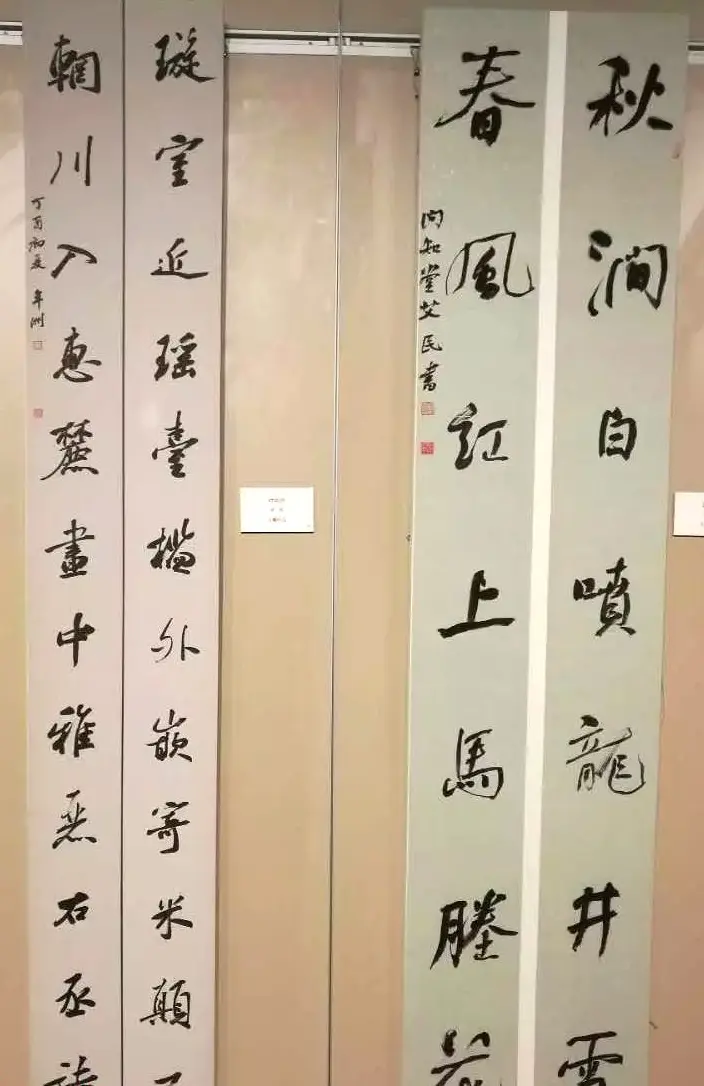 秋澗白噴龍井雪
春風紅上馬塍花
問知堂艾民書
璇室近瑤臺檻外嵌寄米顛
輞川入惠麓畫中雅右丞詩
丁酉初夏 年洲